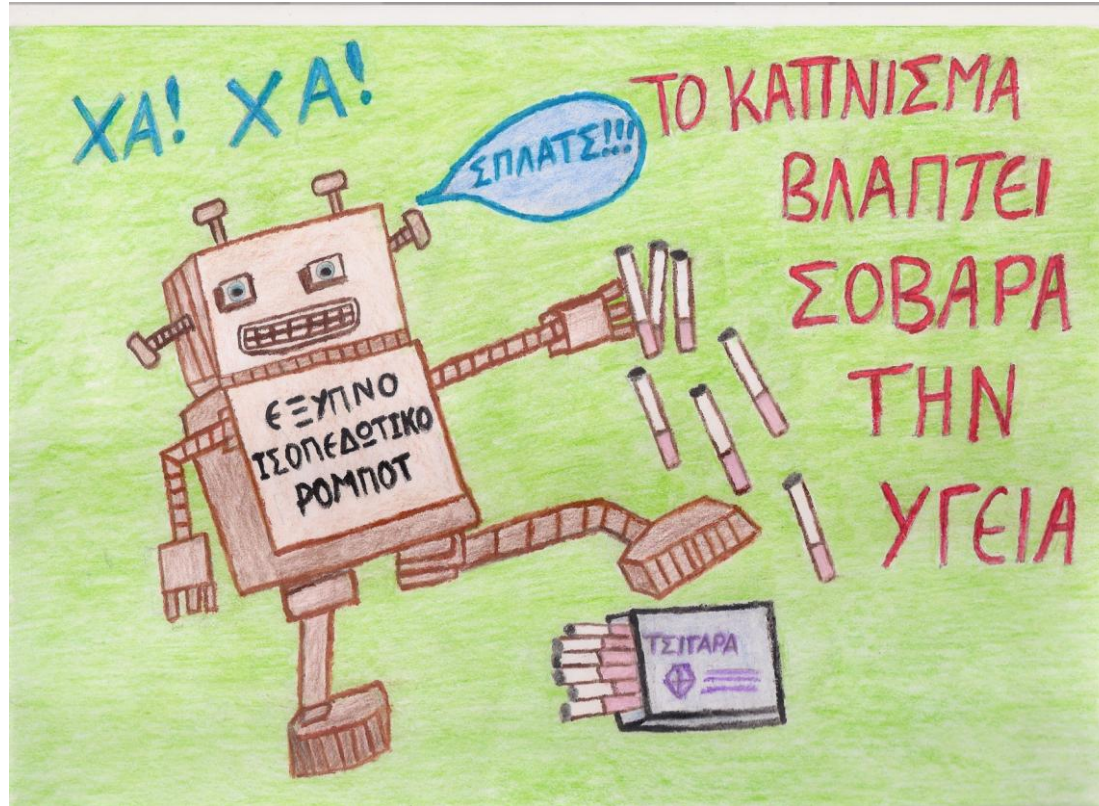 ΧΑ! ΧΑ!
ΣΠΛΑΤΣ!!!
ΤΟ ΚΑΠΝΙΣΜΑ
ΒΛΑΠΤΕΙ
ΣΟΒΑΡΑ
ΤΗΝ
ΥΓΕΙΑ
ΕΞΥΠΝΟ
ΙΣΟΠΕΔΩΤΙΚΟ
ΡΟΜΠΟΤ
ΤΣΙΓΑΡΑ